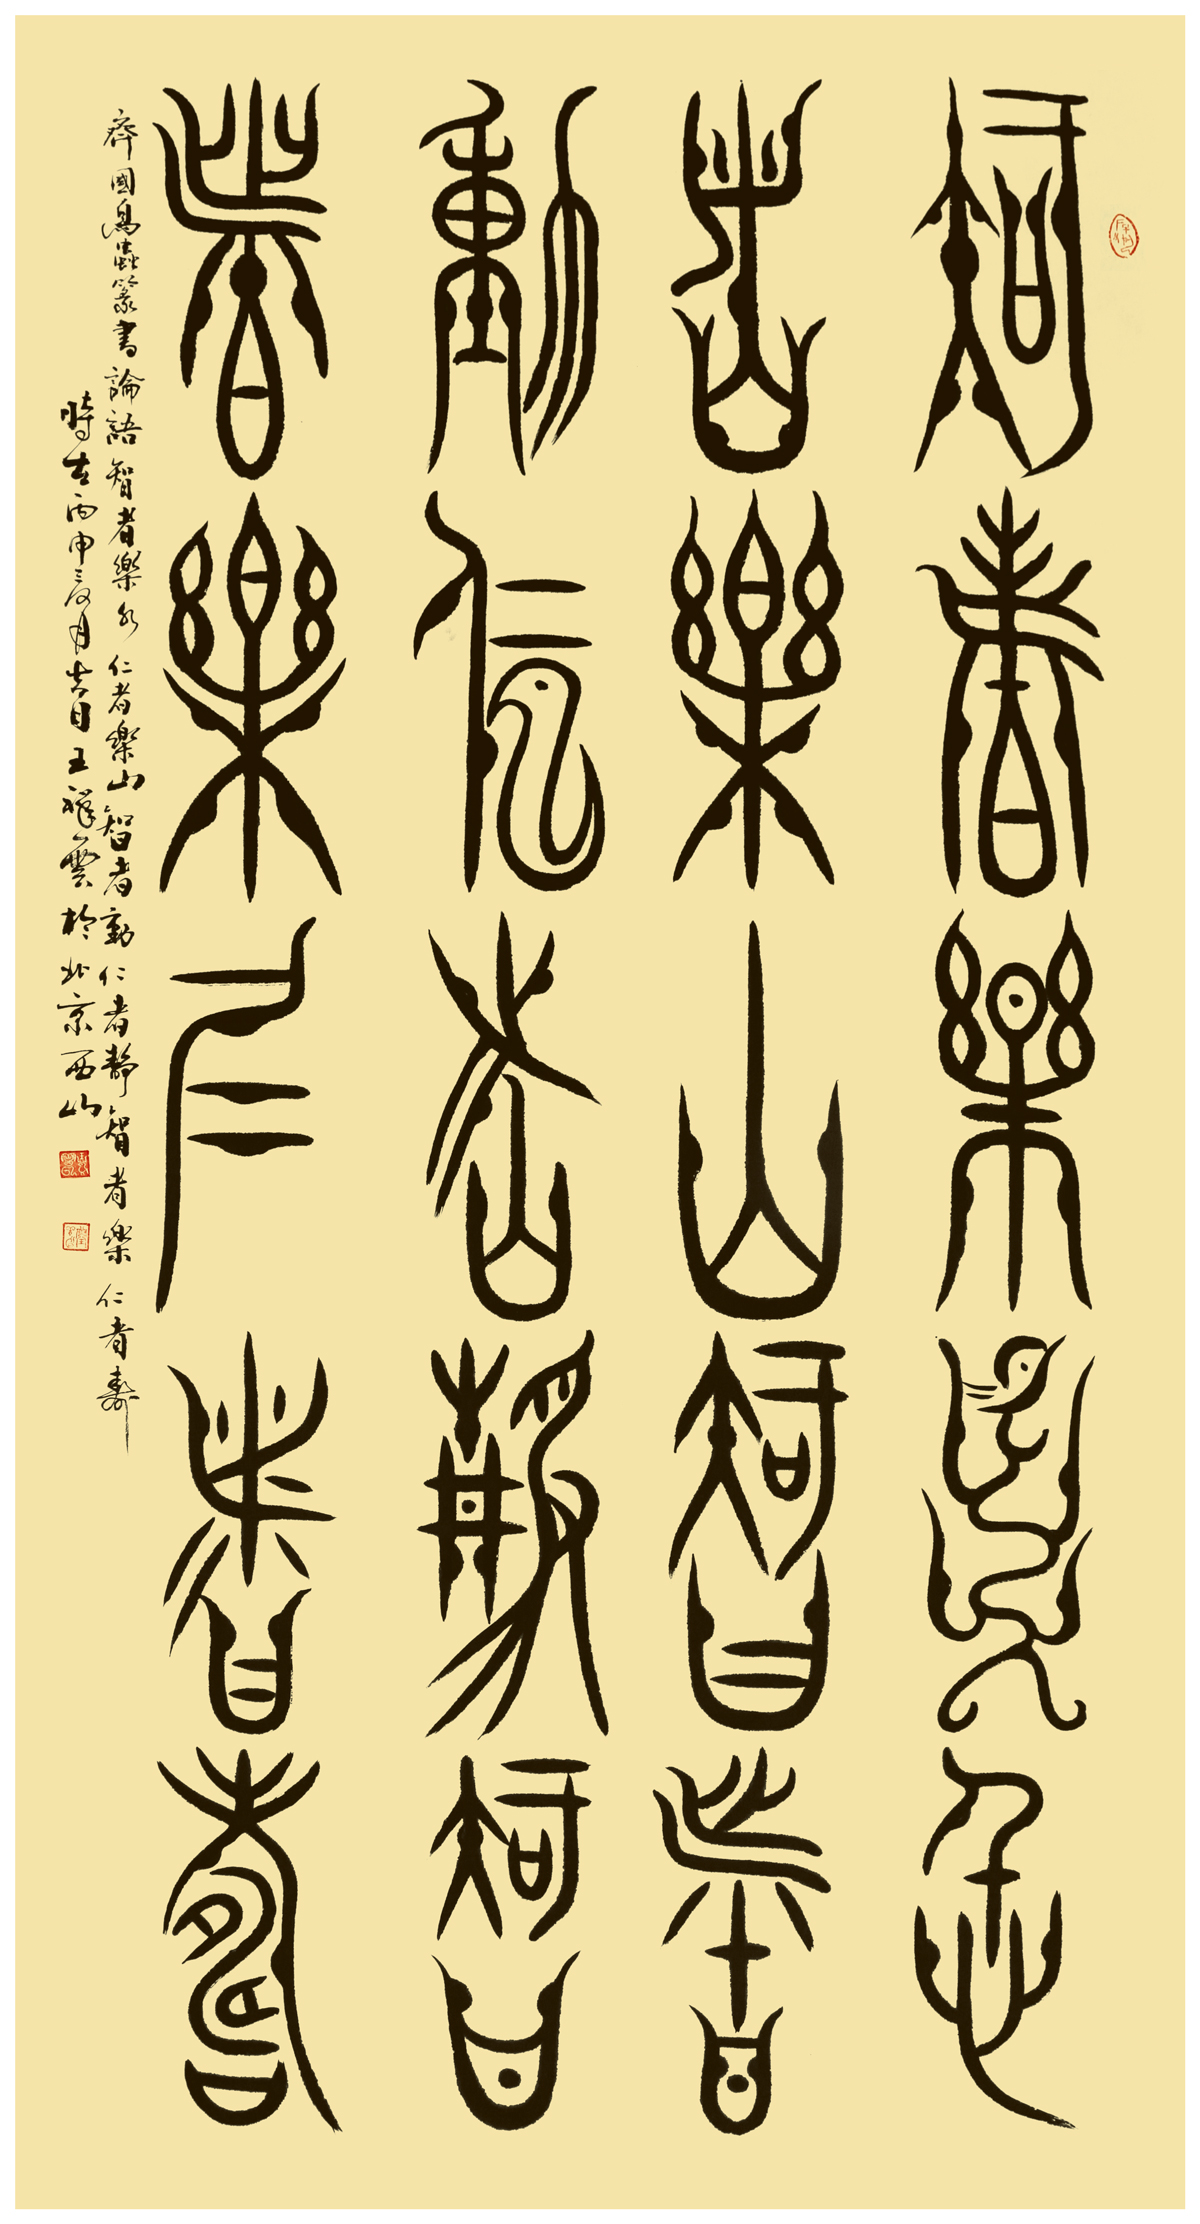 智者樂水仁
者樂山智者
動仁者靜智
者樂仁者壽
齊國鳥蟲篆書論語智者樂水仁者樂山智者動仁者靜智者樂仁者壽
時在丙申之夏月吉日王祥雲於北京西山